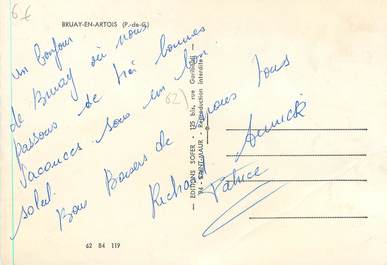 6€
BRUAY-EN-ARTOIS (P.-de-C.)
un bonjour
de Bruay où nous
passons de très bonnes
vacances sous un bon
soleil.
Bons Baisers de nous tous
Richard Annick
Patrice
(62)
— EDITIONS SOFER - 125 bis, rue Garibaldi —
94 - SAINT-MAUR - Reproduction interdite
62 84 119